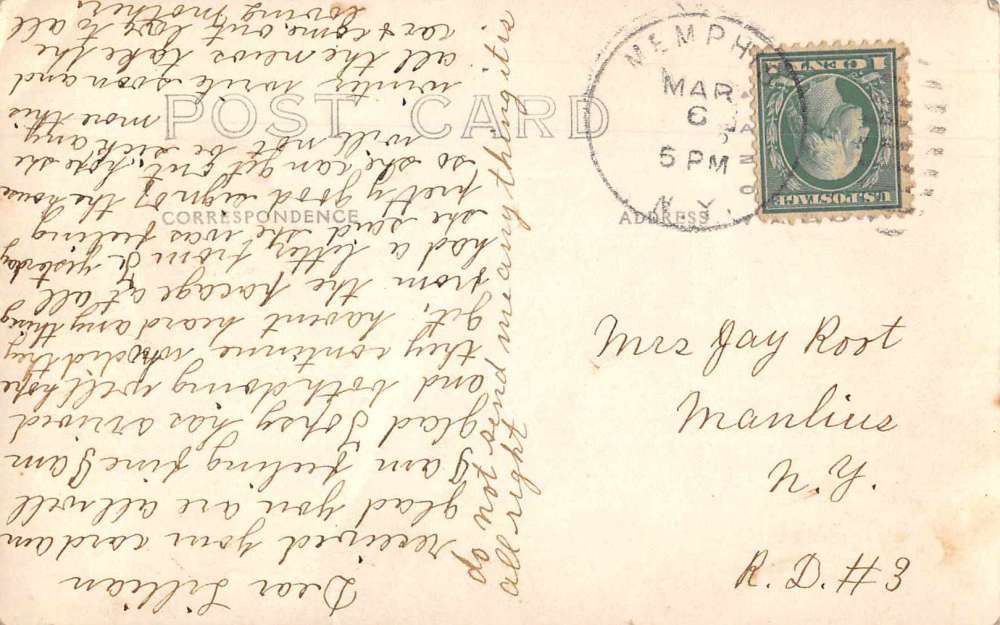 POST CARD
CORRESPONDENCE
ADDRESS
MEMPHIS
MAR
6
5 PM
N.Y.
U.S. POSTAGE
1 CENT 1
Mrs Jay Root
Manlius
N.Y.
R.D. #3
Dear Lillian
received your card am
glad you are all well
I am feeling fine I am
glad Topsy has arrived
and both doing well hope
they continue did they
git, havent heard any thing
from the pacage at all
had a letter from yesterday
she said she was feeling
pretty good signs of the house
so she can get out hope she
will not be sick any
more this
winter write soon and
all the news take the
car & come out love to all
loving mother
do not send me any thing it is
all right